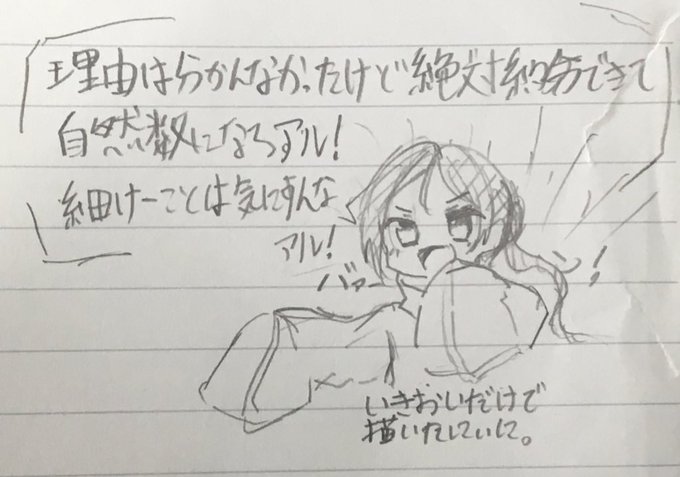 理由は分かんなかったけど絶対約分できて
自然数になるアル!
細けーことは気にすんな
アル!
バァーン!
いきおいだけで
描いたしいに。